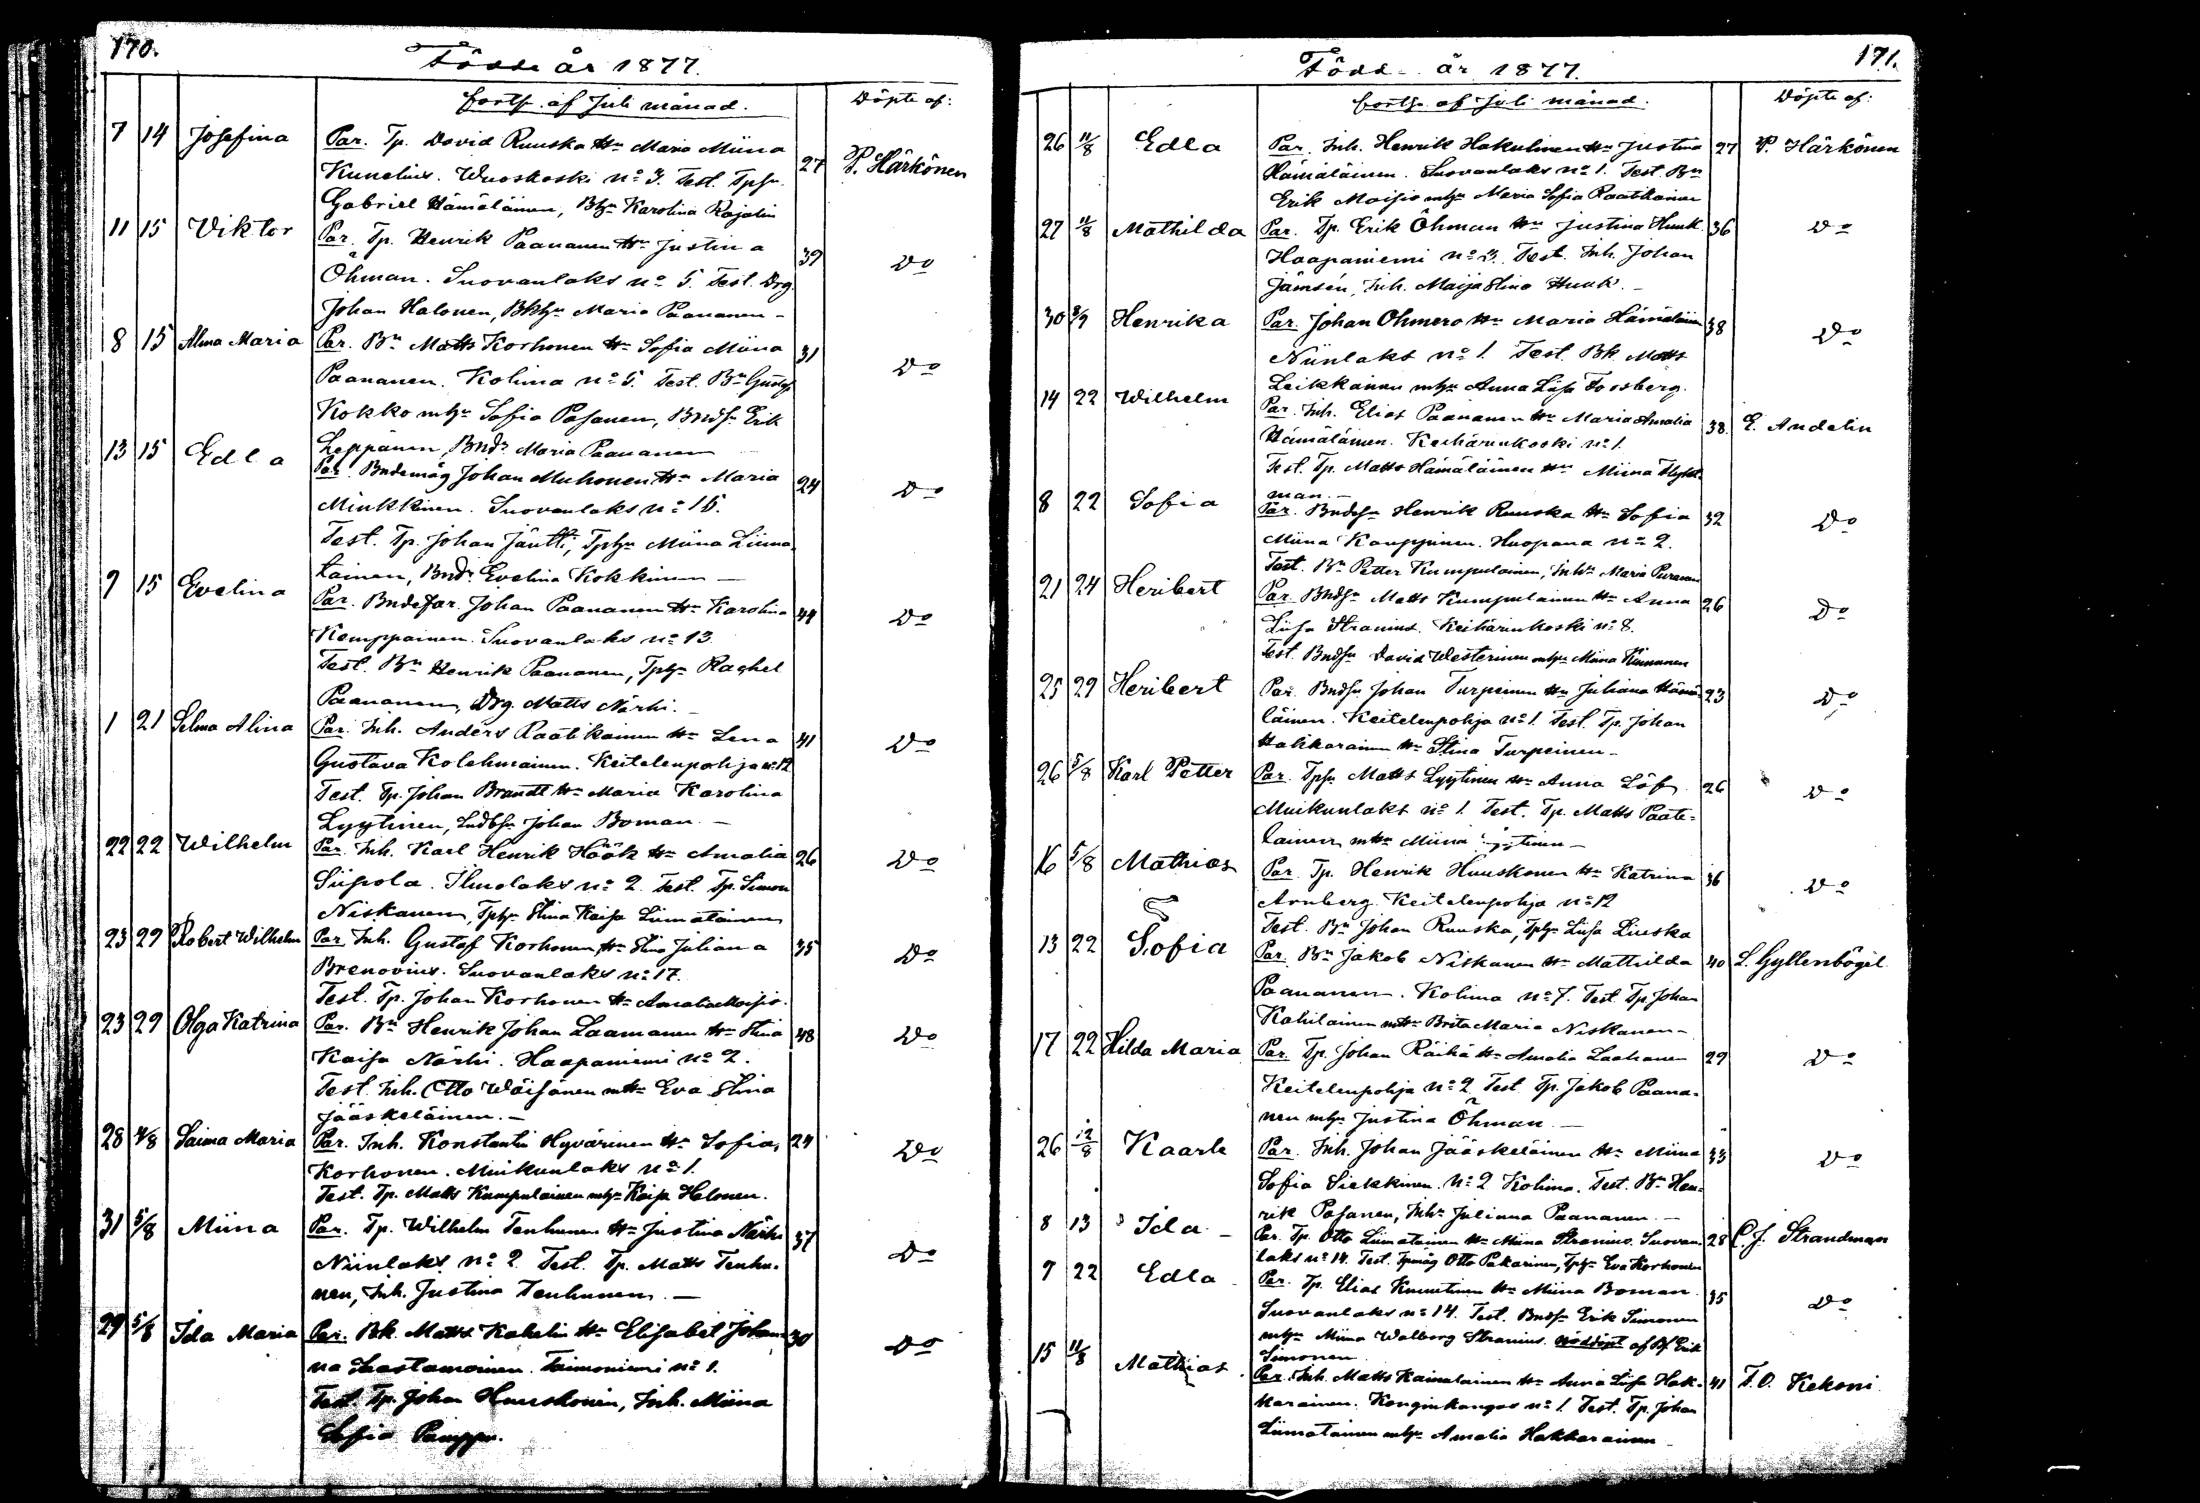 170.
Födde år 1877.
forts. af Juli månad.
Döpte af:
7 14 Josefina Par. Tp. David Ruuska Hu Maria Miina 27 P. Härkönen
Kunelius. Wuoskoski No 3. Test. Tpsn
Gabriel Hämäläinen, Btgn Karolina Rajalin
11 15 Viktor Par. Tp. Henrik Paananen Hu Justina 39 Do
Öhman. Suovanlaks No 5. Test. Drg.
Johan Halonen, Maria Paananen –
8 15 Alma Maria Par. Bn Matts Korhonen Hu Sofia Miina 31 Do
Paananen. Kolima No 5. Test. Bn Gustaf
Kokko mhu Sofia Pasanen, Bndsn Erik
Leppänen, Bndr Maria Paananen
13 15 Edla Par. Bndemåg Johan Muhonen Hu Maria 24 Do
Minkkinen. Suovanlaks No 15.
Test. Tp. Johan Jäntti, Tphu Miina Liima-
tainen, Bndr Evelina Kokkinen –
7 15 Evelina Par. Bndefar. Johan Paananen Hu Karolina 44 Do
Kemppainen. Suovanlaks No 13.
Test. Bn Henrik Paananen, Tphu Raghel
Paananen, Drg. Matts Närhi. –
1 21 Selma Alina Par. Inh. Anders Raatikainen Hu Lena 41 Do
Gustava Kolehmainen. Keitelenpohja No 12
Test. Tp. Johan Brandt Hu Maria Karolina
Lyytinen, Johan Boman. –
22 22 Wilhelm Par. Inh. Karl Henrik Höök Hu Amalia 26 Do
Siipola. Ilmolaks No 2. Test. Tp. Simon
Niskanen, Tphu Stina Kaisa Liimatainen
23 29 Robert Wilhelm Par. Inh. Gustaf Korhonen, Hu Stina Juliana 35 Do
Brenovius. Suovanlaks No 17.
Test. Tp. Johan Korhonen Hu Amalia Moisio.
23 29 Olga Katrina Par. Bn Henrik Johan Laamanen Hu Stina 48 Do
Kaisa Närhi. Haapaniemi No 2.
Test. Inh. Otto Wäisänen mhu Eva Stina
Jääskeläinen. –
28 4/8 Saima Maria Par. Inh. Konstantin Hyvärinen Hu Sofia 24 Do
Korhonen. Muikunlaks No 1.
Test. Tp. Matts Kumpulainen mhu Kaisa Halonen.
31 5/8 Miina Par. Tp. Wilhelm Tenhunen Hu Justina Närhi 37 Do
Niinlaks No 2. Test. Tp. Matts Tenhu-
nen, Inh. Justina Tenhunen. –
29 5/8 Ida Maria Par. Bk. Matts Kahelin Hu Elisabet Johan- 30 Do
na Saastamoinen. Taimoniemi No 1.
Test. Tp. Johan Huuskonen, Inh. Miina
Sofia Pamppu.
171.
Född- år 1877.
forts. af Juli månad.
Döpte af:
26 11/8 Edla Par. Inh. Henrik Hakulinen Hu Justina 27 P. Härkönen
Hämäläinen. Suovanlaks No 1. Test. Bn
Erik Moisio mhu Maria Sofia Raatikainen
27 11/8 Mathilda Par. Tp. Erik Öhman Hu Justina Hunk 36 Do
Haapaniemi No 3. Test. Inh. Johan
Jämsén, Inh. Maija Stina Hunk. –
30 Henrika Par. Johan Ohmero Hu Maria Hämäläinen 38 Do
Niinlaks No 1. Test. Bk. Matts
Leikkainen mhu Anna Lisa Forsberg.
14 22 Wilhelm Par. Inh. Elias Paananen Hu Maria Amalia 38 E. Andelin
Hämäläinen. Keihärinkoski No 1.
Test. Tp. Matts Hämäläinen Hu Miina Flykt-
man. –
8 22 Sofia Par. Bndesn Henrik Ruuska Hu Sofia 32 Do
Miina Kauppinen. Huopana No 2.
Test. Bn Petter Kumpulainen, Inhn Maria Puranen
21 24 Heribert Par. Bndsn Matts Kumpulainen Hu Anna 26 Do
Liisa Stranius. Keihärinkoski No 8.
Test. Bndsn David Westerinen mhu Miina Kinnunen
25 29 Heribert Par. Bndsn Johan Turpeinen Hu Juliana Hämä- 23 Do
läinen. Keitelenpohja No 1. Test. Tp. Johan
Hakkarainen Hu Stina Turpeinen –
26 5/8 Karl Petter Par. Tpsn Matts Lyytinen Hu Anna Löf 26 Do
Muikunlaks No 1. Test. Tp. Matts Paate-
lainen mhu Miina –
16 5/8 Mathias Par. Tp. Henrik Huuskonen Hu Katrina 36 Do
Arnberg. Keitelenpohja No 12
Test. Bn Johan Ruuska, Tphu Liisa Liuska
13 22 Sofia Par. Bn Jakob Niskanen Hu Mathilda 40 L. Gyllenbögel
Paananen. Kolima No 7. Test. Tp. Johan
Kahilainen mhu Brita Maria Niskanen –
17 22 Hilda Maria Par. Tp. Johan Räihä Hu Amalia Laakanen 29 Do
Keitelenpohja No 2 Test. Tp. Jakob Paana-
nen mhu Justina Öhman. –
26 12/8 Kaarle Par. Inh. Johan Jääskeläinen Hu Miina 33 Do
Sofia Siekkinen. No 2 Kolima. Test. Bn Hen-
rik Pasanen, Inhn Juliana Paananen. –
8 13 Ida – Par. Tp. Otto Liimatainen Hu Miina Stranius. Suovan- 28 C. J. Strandman
laks No 14. Test. Tpmåg Otto Pakarinen, Tphu Eva Korhonen
7 22 Edla Par. Tp. Elias Kumentinen Hu Miina Boman 35 Do
Suovanlaks No 14. Test. Bndsn Erik Simonen
mhu Miina Walborg Stranius. nöddöpt af Bf Erik
Simonen
15 11/8 Mathias Par. Inh. Matts Kainulainen Hu Anna Liisa Hak- 41 F. O. Kekoni
karainen. Konginkangas No 1. Test. Tp. Johan
Liimatainen mhu Amalia Hakkarainen –